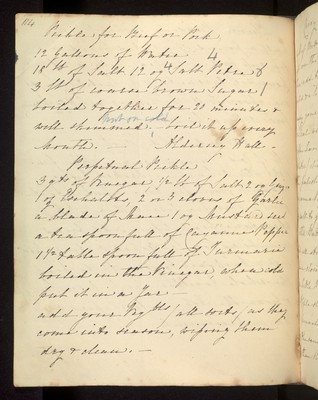 114
Pickle for Beef or Pork
12 Gallons of Water 4
18 lb of Salt 12 oz 4 Salt Petre 6
3 lb of coarse brown Sugar 1
boiled together for 20 minutes &
well skimmed. boil it up every
put on cold
Month. — Alderley Hall —
Perpetual Pickle
3 qts of Vinegar, ½ lb of Salt 2 oz
1 oz Eschalots, 2 or 3 cloves of Garlic
a blade of Mace 1 oz Mustard seed
a teaspoonfull of Cayenne Pepper
1½ table spoon full of Turmeric
boiled in the Vinegar, when cold
put it in a Jar —
add your Vegbls, all sorts, as they
come into season, wiping them
dry & clean. —